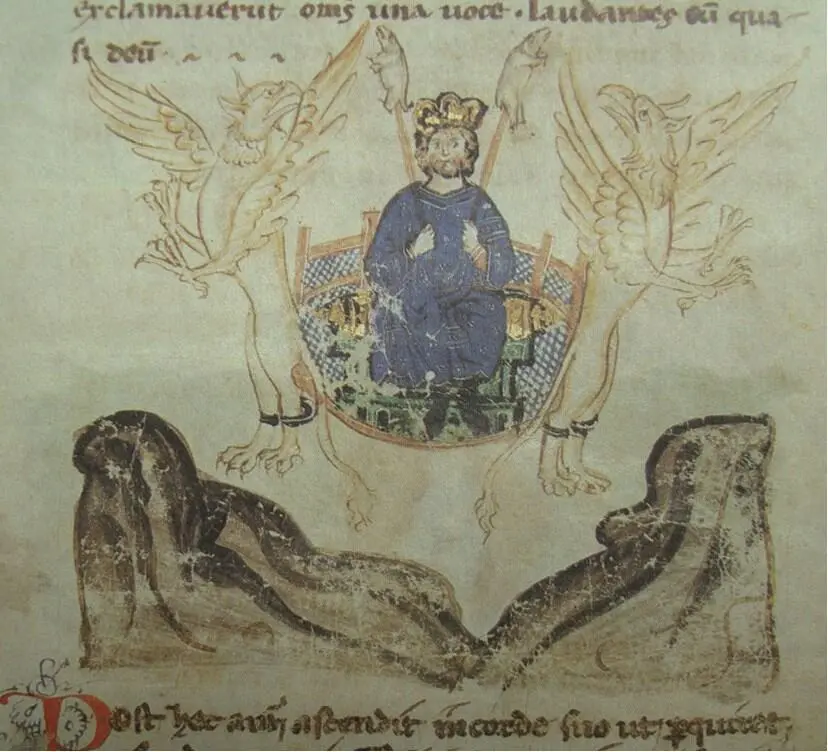 exclamauerūt om̄s una uoce · laudantes eū qua-
si deū ~ ~ ~ ~
Post hec aūt ascendit in corde suo ut ꝑquiret,